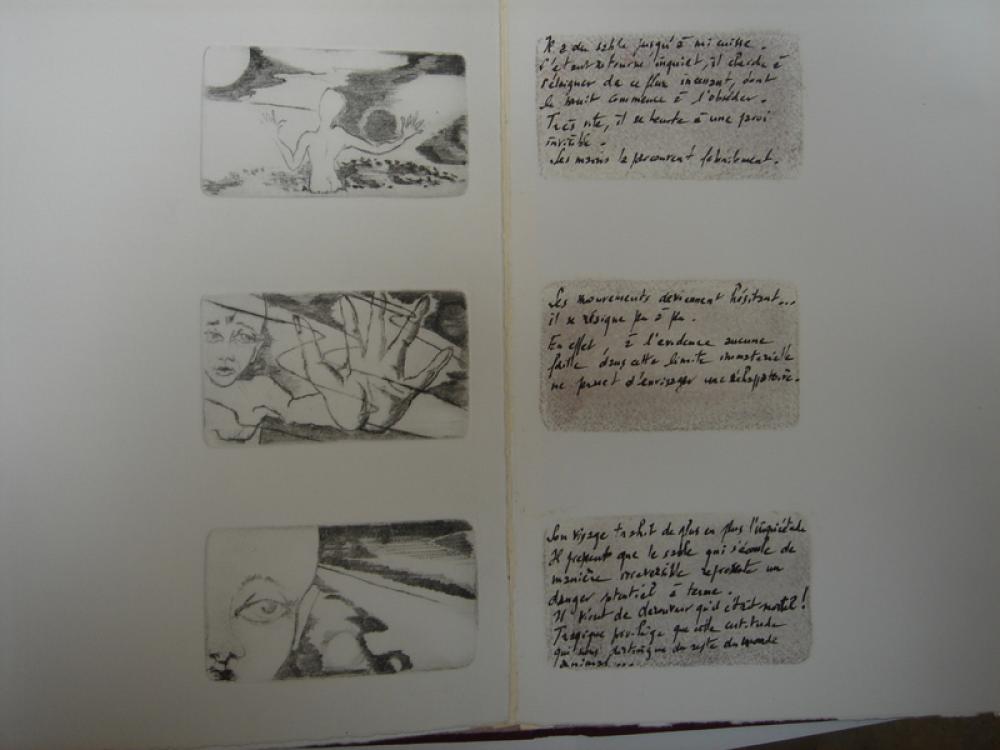 Il a du sable jusqu'à mi cuisse.
S'étant retourné inquiet, il cherche à
s'éloigner de ce flux incessant, dont
le bruit commence à l'obséder.
Très vite, il se heurte à une paroi
invisible.
Ses mains la parcourent fébrilement.
Ses mouvements deviennent hésitant...
il se résigne peu à peu.
En effet à l'évidence aucune
faille dans cette limite immatérielle
ne permet d'envisager une échappatoire.
Son visage trahit de plus en plus l'inquiétude
Il pressent que le sable qui s'écoule de
manière irréversible représente un
danger potentiel à terme.
Il vient de découvrir qu'il était mortel !
Tragique privilège que cette certitude
qui nous distingue du reste du monde
animal ...